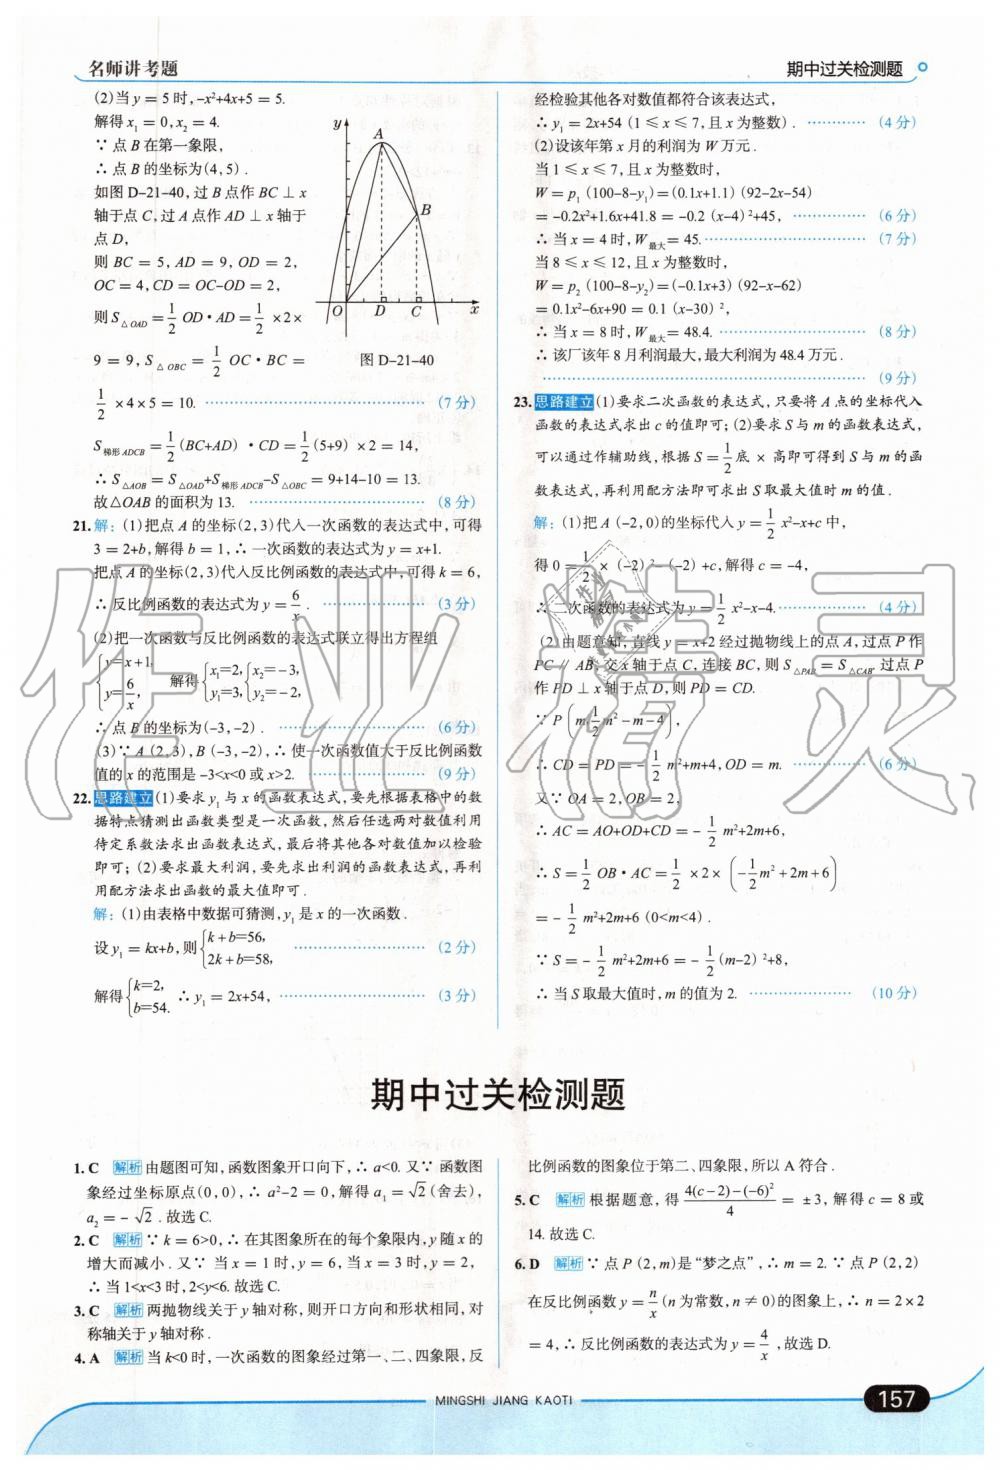 名师讲考题
期中过关检测题
(2)当 y = 5 时,-x²+4x+5 = 5.
解得 x₁ = 0,x₂ = 4.
∵ 点 B 在第一象限,
∴ 点 B 的坐标为(4,5).
如图 D-21-40,过 B 点作 BC ⊥ x
轴于点 C,过 A 点作 AD ⊥ x 轴于
点 D,
则 BC = 5, AD = 9, OD = 2,
OC = 4,CD = OC-OD = 2,
则 S△OAD = 1/2 OD·AD = 1/2 ×2×
9 = 9, S△OBC = 1/2 OC·BC =
1/2 ×4×5 = 10. (7分)
y
A
B
O D C x
图 D-21-40
S梯形ADCB = 1/2 (BC+AD)·CD = 1/2 (5+9)×2 = 14,
∴ S△AOB = S△OAD+S梯形ADCB-S△OBC = 9+14-10 = 13.
故△OAB 的面积为 13. (8分)
21.解: (1)把点 A 的坐标(2,3)代入一次函数的表达式中,可得
3 = 2+b,解得 b = 1,∴ 一次函数的表达式为 y = x+1.
把点 A 的坐标(2,3)代入反比例函数的表达式中,可得 k = 6,
∴ 反比例函数的表达式为 y = 6/x . (3分)
(2)把一次函数与反比例函数的表达式联立得出方程组
{y=x+1, y=6/x, 解得{x₁=2, y₁=3, {x₂=-3, y₂=-2,
∴ 点 B 的坐标为(-3,-2). (6分)
(3)∵ A (2,3),B (-3,-2),∴ 使一次函数值大于反比例函数
值的 x 的范围是 -3<x<0 或 x>2. (9分)
22.思路建立(1)要求 y₁ 与 x 的函数表达式,要先根据表格中的数
据特点猜测出函数类型是一次函数,然后任选两对数值利用
待定系数法求出函数表达式,最后将其他各对数值加以检验
即可; (2)要求最大利润,要先求出利润的函数表达式,再利
用配方法求出函数的最大值即可.
解: (1)由表格中数据可猜测,y₁ 是 x 的一次函数.
设 y₁ = kx+b,则{k+b=56, 2k+b=58, (2分)
解得{k=2, b=54. ∴ y₁ = 2x+54, (3分)
经检验其他各对数值都符合该表达式,
∴ y₁ = 2x+54 (1 ≤ x ≤ 7,且 x 为整数). (4分)
(2)设该年第 x 月的利润为 W 万元.
当 1 ≤ x ≤ 7,且 x 为整数时,
W = p₁ (100-8-y₁) = (0.1x+1.1) (92-2x-54)
= -0.2x²+1.6x+41.8 = -0.2 (x-4)²+45, (6分)
∴ 当 x = 4 时,W最大 = 45. (7分)
当 8 ≤ x ≤ 12,且 x 为整数时,
W = p₂ (100-8-y₂) = (-0.1x+3) (92-x-62)
= 0.1x²-6x+90 = 0.1 (x-30)²,
∴ 当 x = 8 时,W最大 = 48.4. (8分)
∴ 该厂该年 8 月利润最大,最大利润为 48.4 万元.
(9分)
23.思路建立(1)要求二次函数的表达式,只要将 A 点的坐标代入
函数的表达式求出 c 的值即可; (2)要求 S 与 m 的函数表达式,
可以通过作辅助线,根据 S = 1/2 底 × 高即可得到 S 与 m 的函
数表达式,再利用配方法即可求出 S 取最大值时 m 的值.
解: (1)把 A (-2,0)的坐标代入 y = 1/2 x²-x+c 中,
得 0 = 1/2 × (-2)²-(-2)+c,解得 c = -4,
∴ 二次函数的表达式为 y = 1/2 x²-x-4. (4分)
(2)由题意知,直线 y = x+2 经过抛物线上的点 A,过点 P 作
PC // AB,交 x 轴于点 C,连接 BC,则 S△PAB = S△CAB. 过点 P
作 PD ⊥ x 轴于点 D,则 PD = CD.
∵ P(m,1/2 m²-m-4),
∴ CD = PD = -1/2 m²+m+4,OD = m. (6分)
又∵ OA = 2,OB = 2,
∴ AC = AO+OD+CD = -1/2 m²+2m+6,
∴ S = 1/2 OB·AC = 1/2 ×2×(-1/2 m²+2m+6)
= -1/2 m²+2m+6 (0<m<4).
∵ S = -1/2 m²+2m+6 = -1/2 (m-2)²+8,
∴ 当 S 取最大值时,m 的值为 2. (10分)
期中过关检测题
1. C 解析 由题图可知,函数图象开口向下,∴ a<0. 又∵ 函数图
象经过坐标原点(0,0),∴ a²-2 = 0,解得 a₁ = √2 (舍去),
a₂ = -√2 . 故选 C.
2. C 解析 ∵ k = 6>0,∴ 在其图象所在的每个象限内,y 随 x 的
增大而减小. 又∵ 当 x = 1 时,y = 6,当 x = 3 时,y = 2,
∴ 当 1<x<3 时,2<y<6. 故选 C.
3. C 解析 两抛物线关于 y 轴对称,则开口方向和形状相同,对
称轴关于 y 轴对称.
4. A 解析 当 k<0 时,一次函数的图象经过第一、二、四象限,反
比例函数的图象位于第二、四象限,所以 A 符合.
5. C 解析 根据题意,得 4(c-2)-(-6)²/4 = ±3,解得 c = 8 或
14. 故选 C.
6. D 解析 ∵ 点 P (2,m)是“梦之点”,∴ m = 2. ∵ 点 P (2,2)
在反比例函数 y = n/x (n 为常数,n ≠ 0)的图象上,∴ n = 2×2
= 4,∴ 反比例函数的表达式为 y = 4/x ,故选 D.
MINGSHI JIANG KAOTI
157
作业精灵